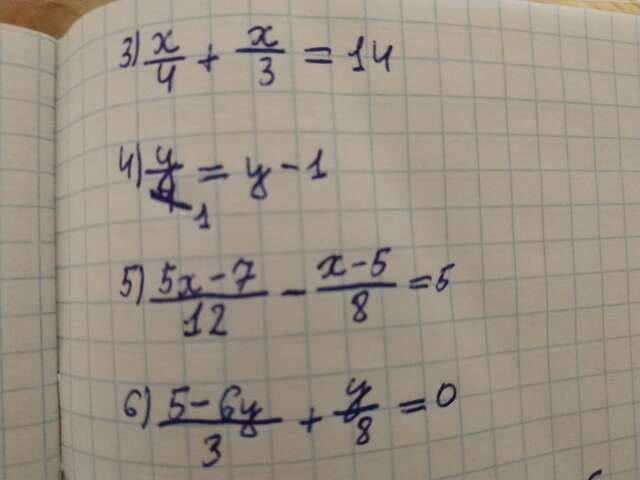 3) x/4 + x/3 = 14
4) y/9 = y - 1
1
5) (5x - 7)/12 - (x - 5)/8 = 5
6) (5 - 6y)/3 + y/8 = 0